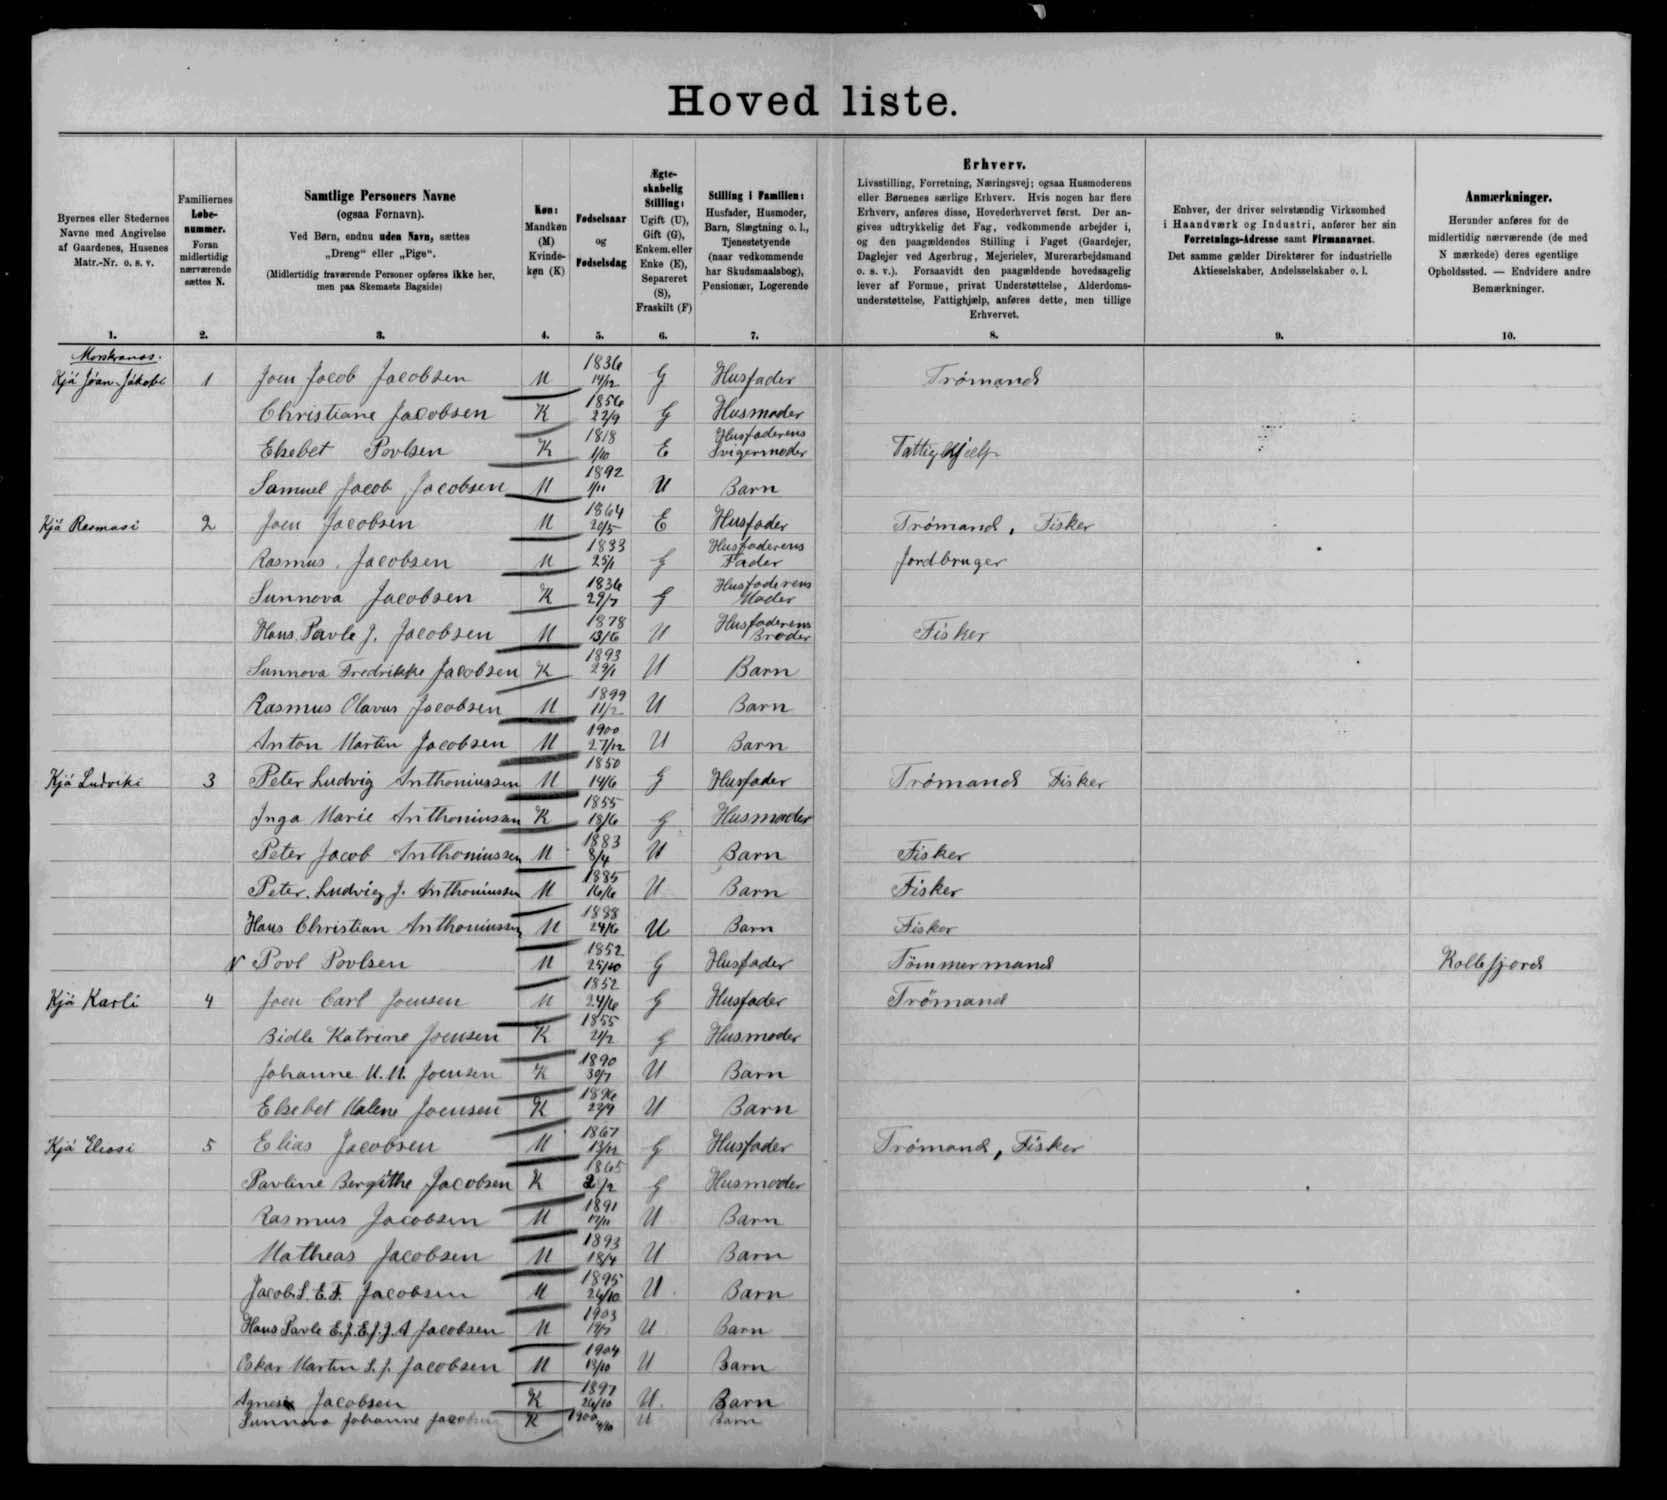 Hoved liste.
Byernes eller Stedernes
Navne med Angivelse
af Gaardenes, Husenes
Matr.-Nr. o. s. v.
1.
Familiernes
Løbe-
nummer.
Foran
midlertidig
nærværende
sættes N.
2.
Samtlige Personers Navne
(ogsaa Fornavn).
Ved Børn, endnu uden Navn, sættes
„Dreng" eller „Pige".
(Midlertidig fraværende Personer opføres ikke her,
men paa Skemaets Bagside)
3.
Køn:
Mandkøn
(M)
Kvinde-
køn (K)
4.
Fødselsaar
og
Fødselsdag
5.
Ægte-
skabelig
Stilling:
Ugift (U),
Gift (G),
Enkem. eller
Enke (E),
Separeret
(S),
Fraskilt (F)
6.
Stilling i Familien:
Husfader, Husmoder,
Barn, Slægtning o. l.,
Tjenestetyende
(naar vedkommende
har Skudsmaalsbog),
Pensionær, Logerende
7.
Erhverv.
Livsstilling, Forretning, Næringsvej; ogsaa Husmoderens
eller Børnenes særlige Erhverv. Hvis nogen har flere
Erhverv, anføres disse, Hovederhvervet først. Der an-
gives udtrykkelig det Fag, vedkommende arbejder i,
og den paagældendes Stilling i Faget (Gaardejer,
Daglejer ved Agerbrug, Mejerielev, Murerarbejdsmand
o. s. v.). Forsaavidt den paagældende hovedsagelig
lever af Formue, privat Understøttelse, Alderdoms-
understøttelse, Fattighjælp, anføres dette, men tillige
Erhvervet.
8.
Enhver, der driver selvstændig Virksomhed
i Haandværk og Industri, anfører her sin
Forretnings-Adresse samt Firmanavnet.
Det samme gælder Direktører for industrielle
Aktieselskaber, Andelsselskaber o. l.
9.
Anmærkninger.
Herunder anføres for de
midlertidig nærværende (de med
N mærkede) deres egentlige
Opholdssted. — Endvidere andre
Bemærkninger.
10.
Morskranes.
Kjá Jóan-Jákobi 1 Joen Jacob Jacobsen M 1836 14/12 G Husfader Trømand
Christiane Jacobsen K 1856 22/9 G Husmoder
Elsebet Povlsen K 1818 1/10 E Husfaderens Svigermoder Fattighjælp
Samuel Jacob Jacobsen M 1892 1/11 U Barn
Kjá Rasmusi 2 Joen Jacobsen M 1864 20/5 E Husfader Trømand, Fisker
Rasmus Jacobsen M 1833 25/1 G Husfaderens Fader Jordbruger
Sunnova Jacobsen K 1836 29/7 G Husfaderens Moder
Hans Pavle J. Jacobsen M 1878 13/6 U Husfaderens Broder Fisker
Sunnova Fredrikke Jacobsen K 1893 29/1 U Barn
Rasmus Olavus Jacobsen M 1899 11/2 U Barn
Anton Martin Jacobsen M 1900 27/12 U Barn
Kjá Ludviki 3 Peter Ludvig Anthoniussen M 1850 14/6 G Husfader Trømand Fisker
Inga Marie Anthoniussen K 1855 18/6 G Husmoder
Peter Jacob Anthoniussen M 1883 8/4 U Barn Fisker
Peter Ludvig J. Anthoniussen M 1885 16/6 U Barn Fisker
Hans Christian Anthoniussen M 1888 24/6 U Barn Fisker
N Povl Povlsen M 1852 25/10 G Husfader Tømmermand Kollefjord
Kjá Karli 4 Joen Carl Joensen M 1852 24/6 G Husfader Trømand
Bidle Katrine Joensen K 1855 21/2 G Husmoder
Johanne M. M. Joensen K 1890 30/7 U Barn
Elsebet Malene Joensen K 1896 22/9 U Barn
Kjá Eliasi 5 Elias Jacobsen M 1867 13/12 G Husfader Trømand, Fisker
Pavline Bergithe Jacobsen K 1865 /2 G Husmoder
Rasmus Jacobsen M 1891 17/11 U Barn
Matheas Jacobsen M 1893 18/4 U Barn
Jacob S. E. F. Jacobsen M 1895 26/10 U Barn
Hans Pavle E. J. E. J. J. A Jacobsen M 1903 U Barn
Oskar Martin S. J. Jacobsen M 1904 13/10 U Barn
Jacobsen K 1897 26/10 U. Barn
Sunnova Johanne Jacobsen K 1900 U Barn